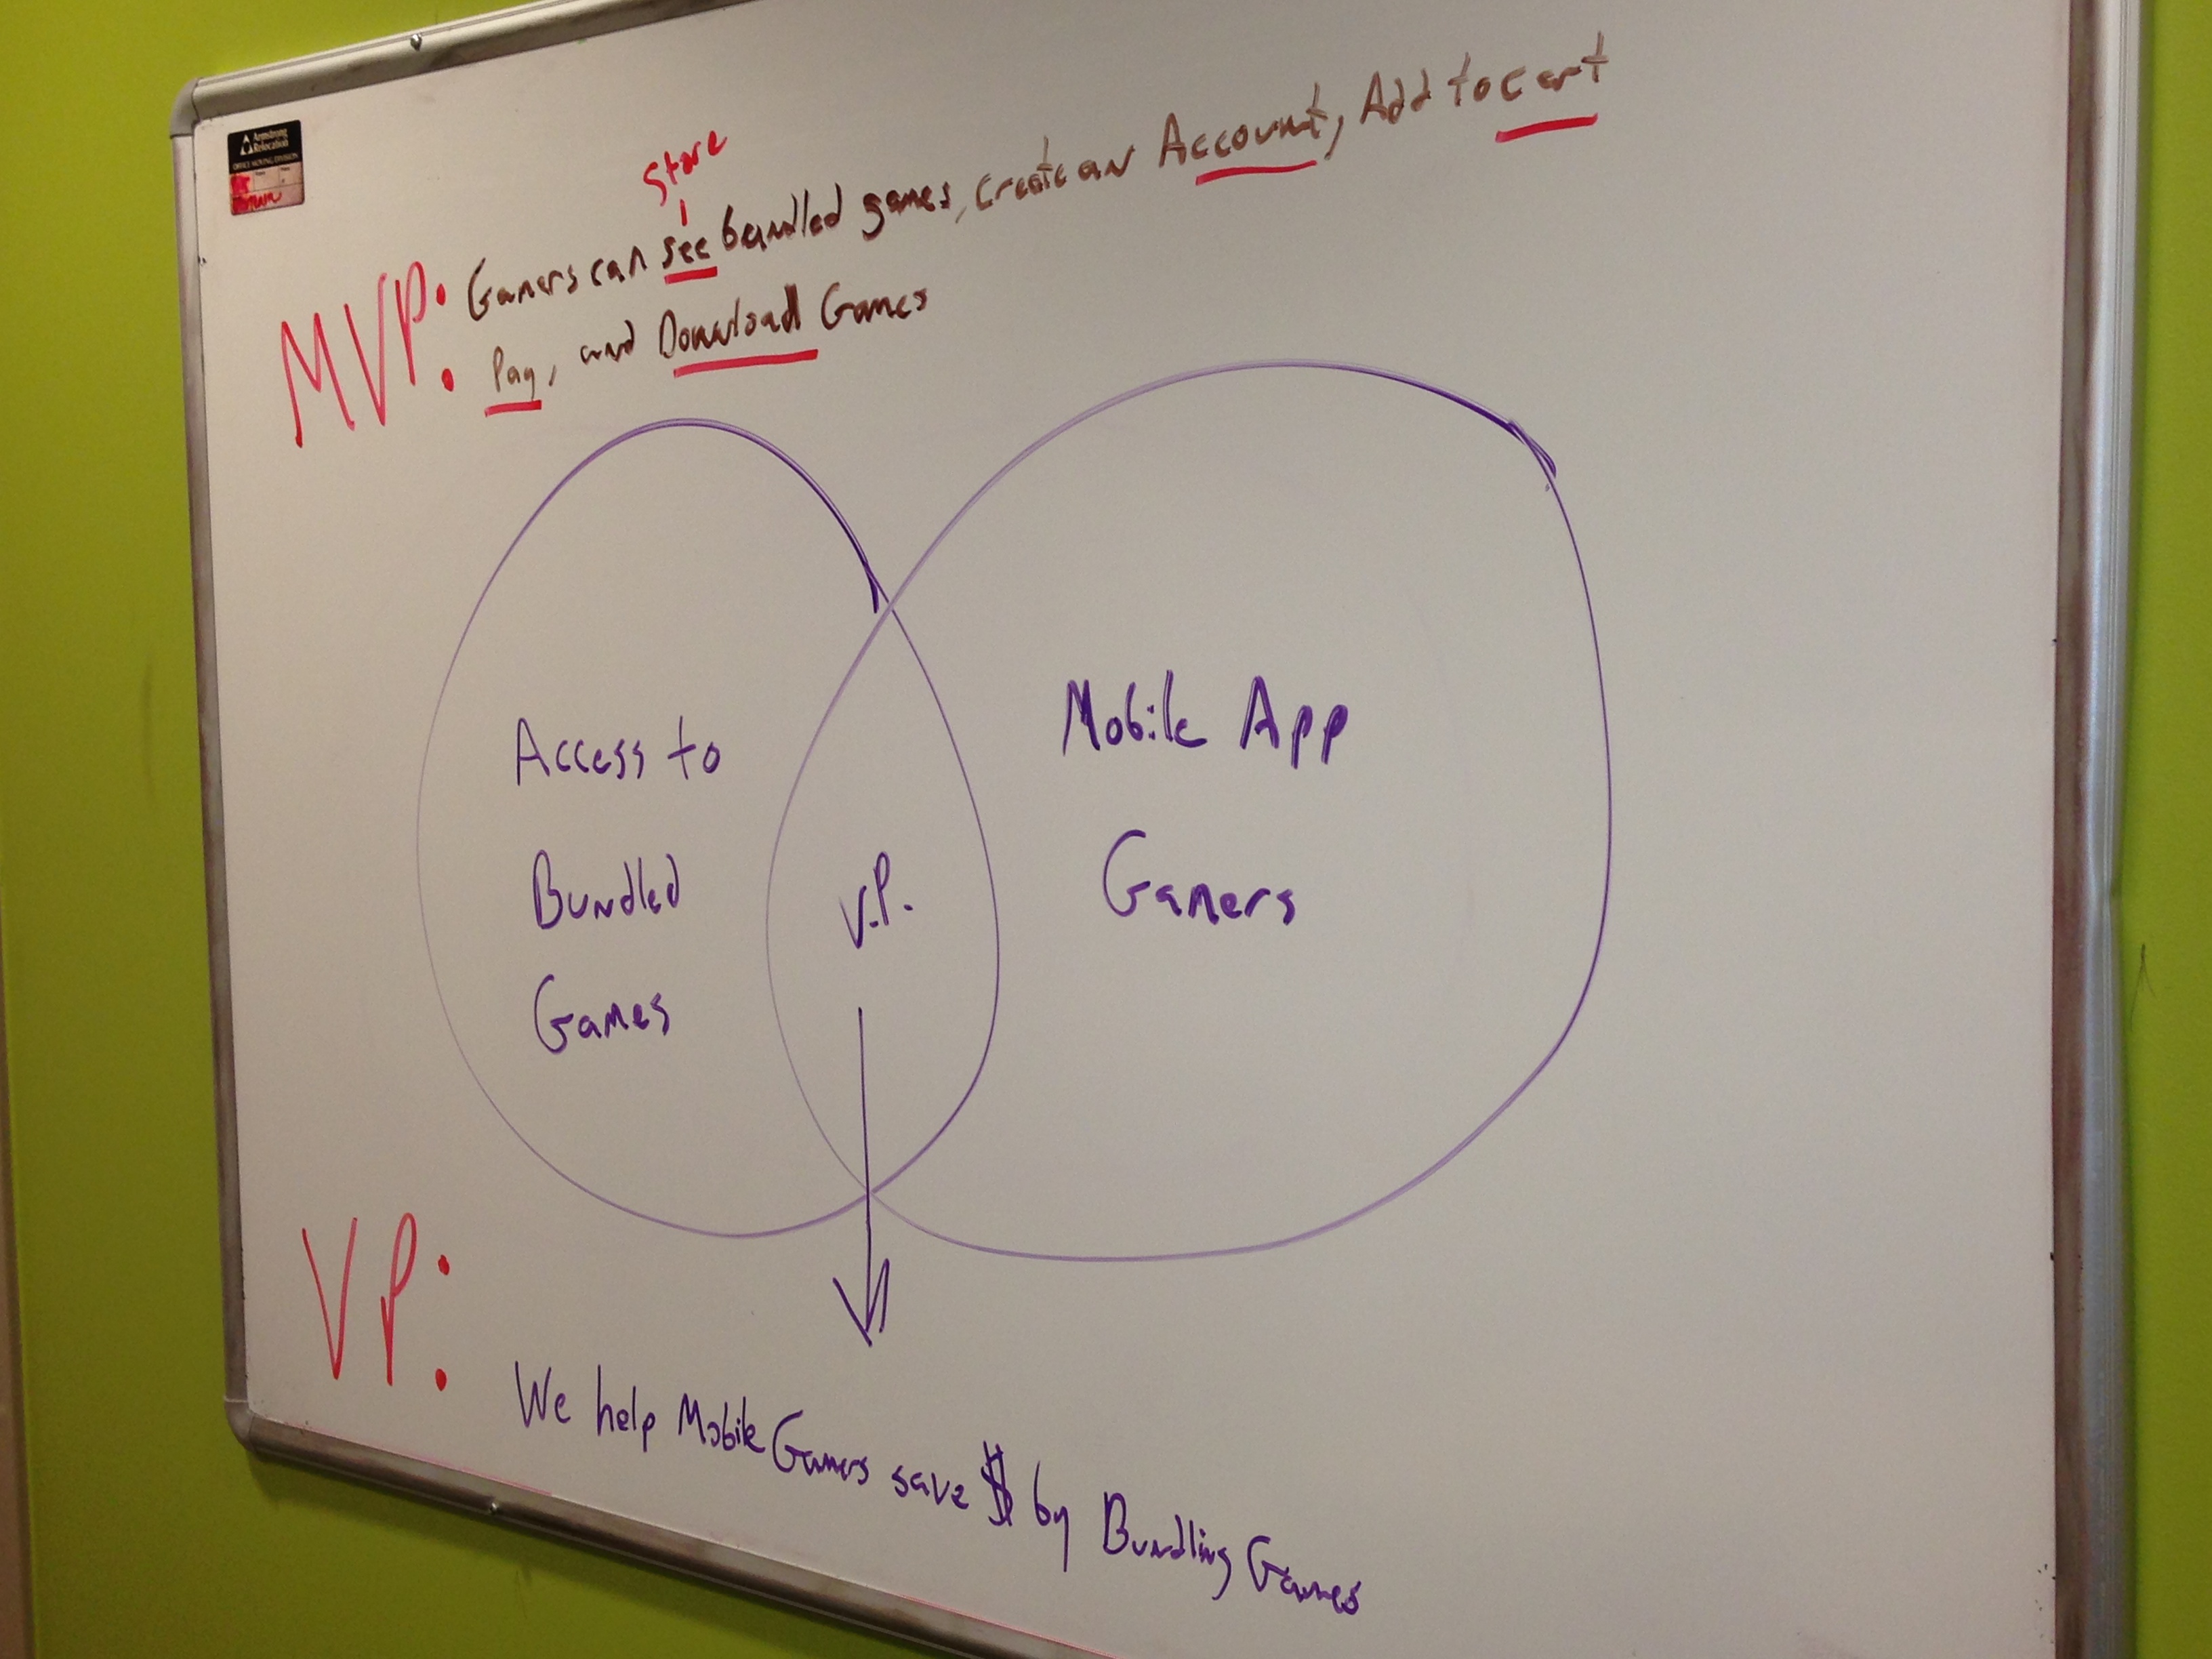 Armstrong
Relocation
OFFICE MOVING DIVISION
Store
MVP: Gamers can see bundled games, create an Account, Add to cart
Pay, and Download Games
Access to
Bundled
Games
V.P.
Mobile App
Gamers
VP:
We help Mobile Gamers save $ by Bundling Games